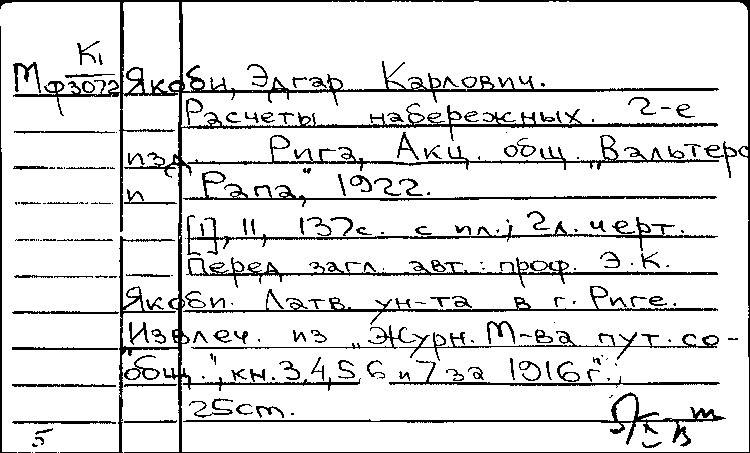 К1
Мф3072 Якоби, Эдгар Карлович.
Расчеты набережных. 2-е
изд. Рига, Акц. общ. „Вальтерс
и Рапа," 1922.
[1], II, 137с. с ил.; 2л. черт.
Перед загл. авт.: проф. Э.К.
Якоби. Латв. ун-та в г. Риге.
Извлеч. из „Журн. М-ва пут. со-
общ.", кн. 3,4,5,6 и 7 за 1916г.",
25cm.
5